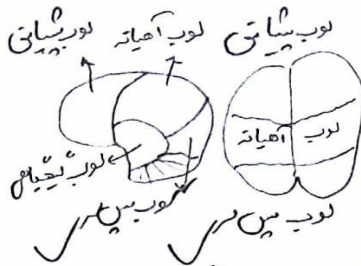 لوب پیشانی
لوب آهیانه
لوب پیشانی
لوب آهیانه
لوب گیجگاهی
لوب پس سری
لوب پس سری